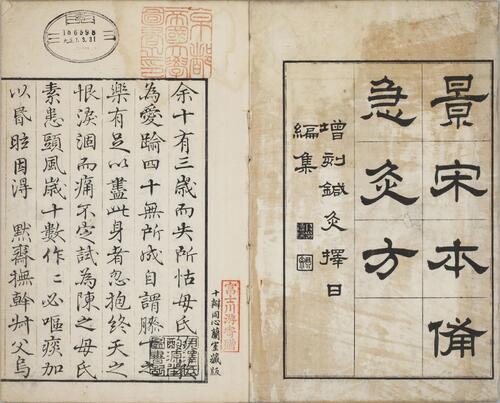 景宋本備
急灸方
增刻鍼灸擇日
編集
京都
帝國大學
圖書之印
十瓣同心蘭室藏版
富士川游寄贈
余十有三歲而失所怙母氏
為愛踰四十無所成自謂膝下之
樂有足以盡此身者忽抱終天之
恨淚涸而痛不定試為陳之母氏
素患頭風歲十數作〻必嘔痰加
以昏眩因得 默齋撫幹父烏